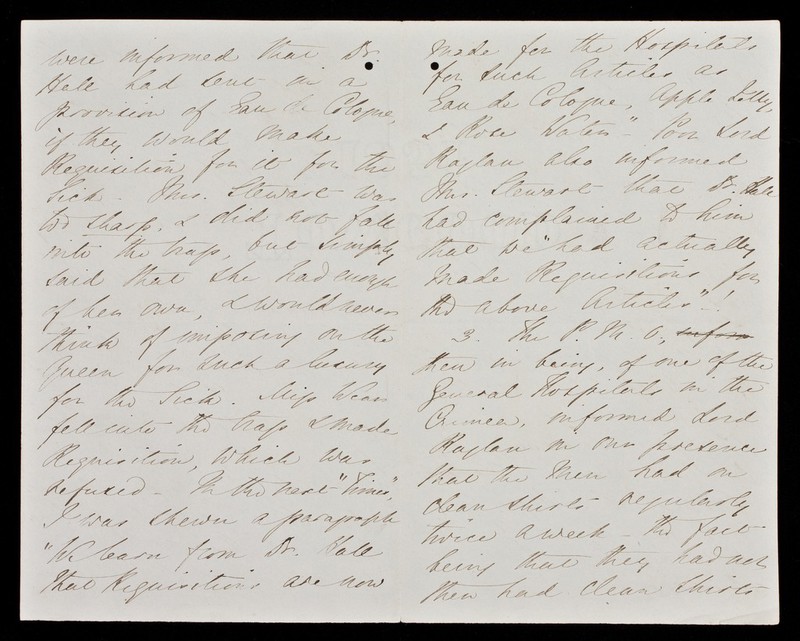 were informed that Dr.
Hall had sent in a
provision of Eau de Cologne,
if they would make
Requisition for it for the
Sick. Mrs. Stewart was
too sharp, & did not fall
into the trap, but simply
said that she had enough
of her own, & would never
think of imposing on the
Queen for such a luxury
for the Sick. Miss Wear
fell into the trap & made
Requisition, which was
refused - In the next "Times",
I was shewn a paragraph
"We learn from Dr. Hall
that Requisitions are now
made for the Hospitals
for such Articles as
Eau de Cologne, Apple Jelly,
& Rose Water" - Poor Lord
Raglan also informed
Mrs. Stewart that Dr. Hall
had complained to him
that we "had actually
made Requisitions for
the above Articles"!
3. The P. M. O., infor
then in being, of one of the
General Hospitals in the
Crimea, informed Lord
Raglan in our presence
that the Men had on
clean shirts regularly
twice a week - the fact
being that they had not
then had clean shirts